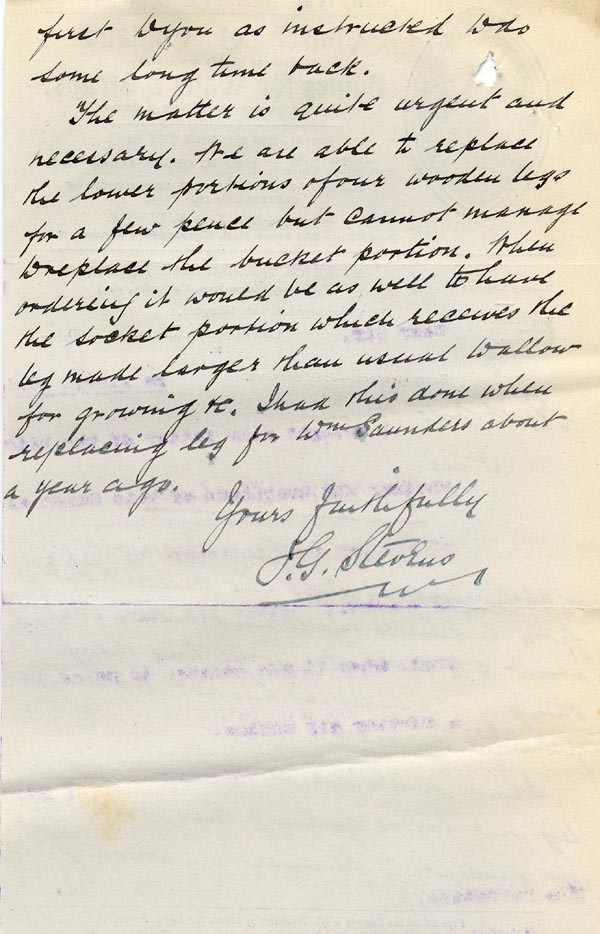 first to you as instructed to do
some long time back.
The matter is quite urgent and
necessary. We are able to replace
the lower portions of our wooden legs
for a few pence but cannot manage
to replace the bucket portion. When
ordering it would be as well to have
the socket portion which receives the
leg made larger than usual to allow
for growing &c. I had this done when
replacing leg for Wm Saunders about
a year ago.
Yours Faithfully
J. G. Stevens